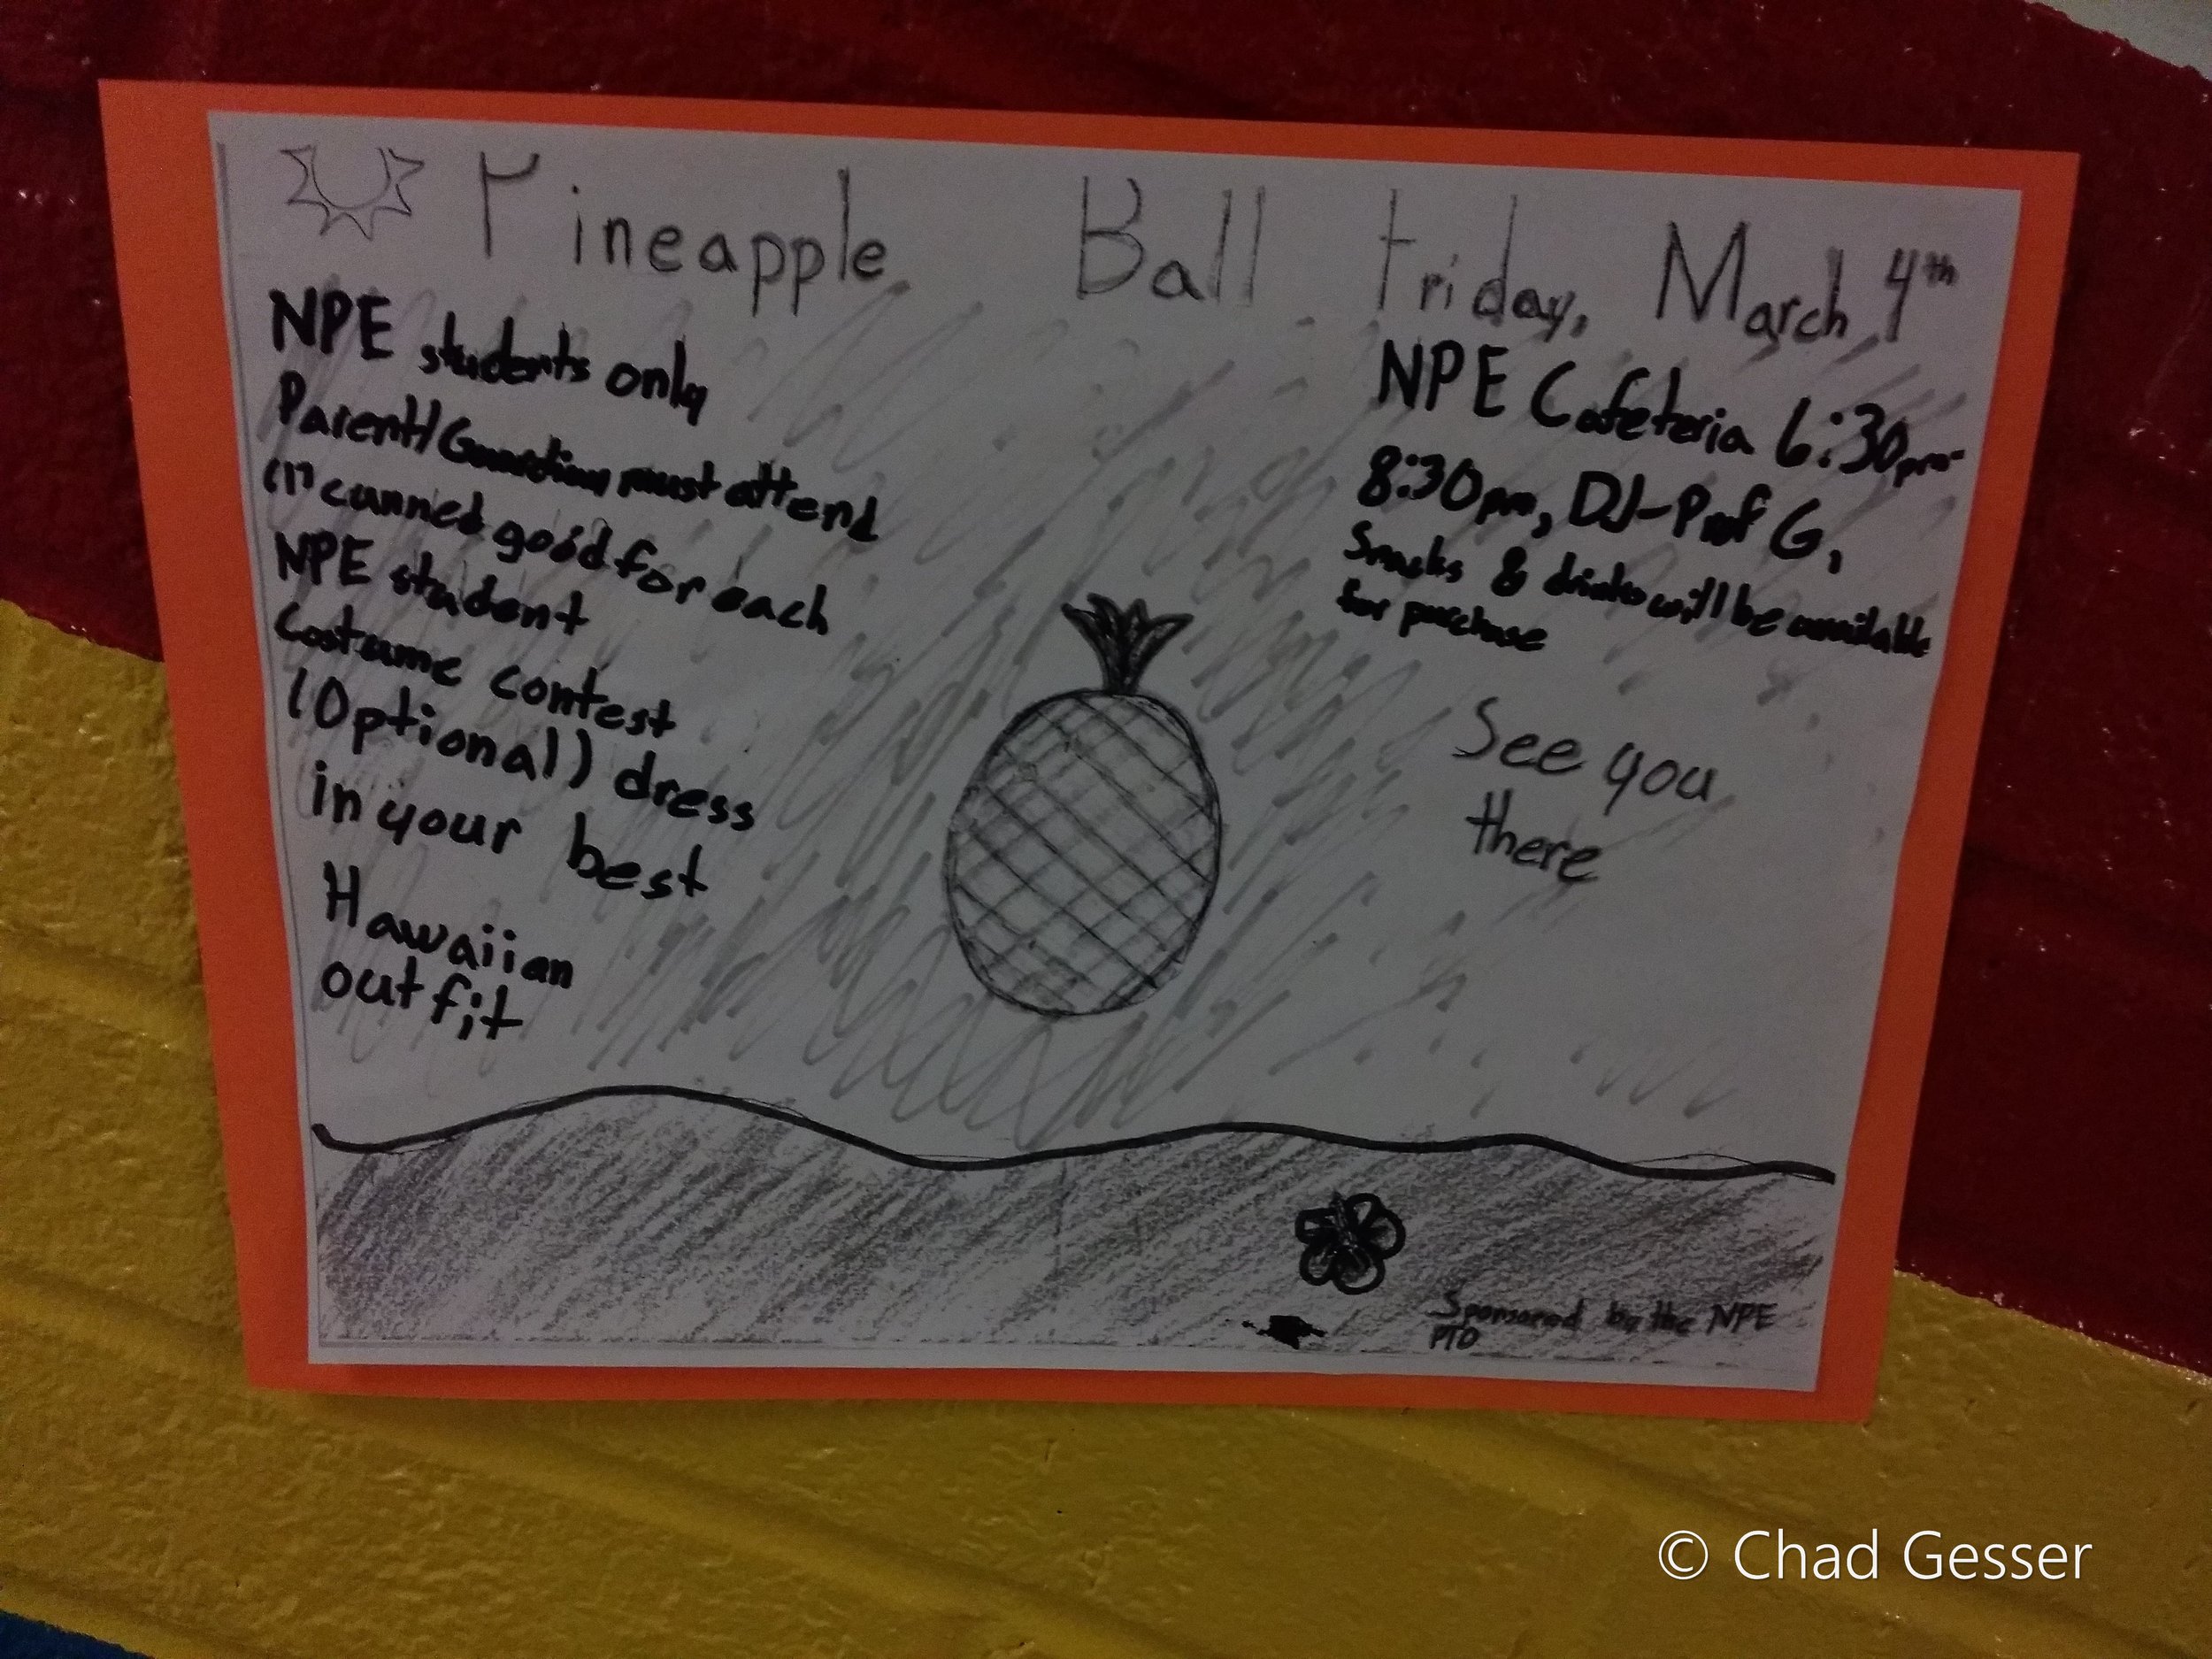 Pineapple Ball Friday, March 4th
NPE students only
Parent/Guardian must attend
(1) canned good for each
NPE student
Costume contest
(Optional) dress
in your best
Hawaiian
outfit
NPE Cafeteria 6:30pm-
8:30pm, DJ-Prof G,
Snacks & drinks will be available
for purchase
See you
there
Sponsored by the NPE
PTO
© Chad Gesser